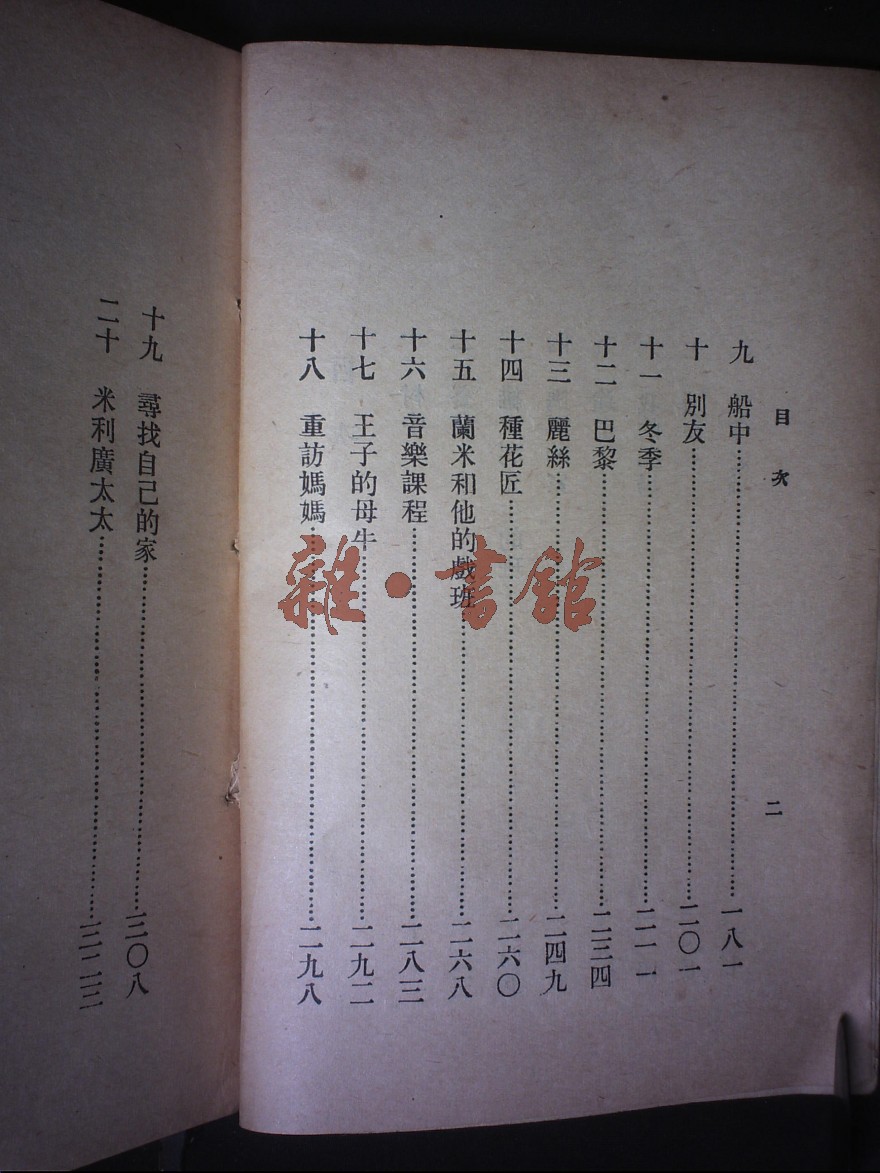 目次
二
九 船中……一八一
十 別友……二〇一
十一 冬季……二一一
十二 巴黎……二三四
十三 麗絲……二四九
十四 種花匠……二六〇
十五 蘭米和他的戲班……二六八
十六 音樂課程……二八三
十七 王子的母牛……二九二
十八 重訪媽媽……二九八
十九 尋找自己的家……三〇八
二十 米利廣太太……三二三
雜·書館